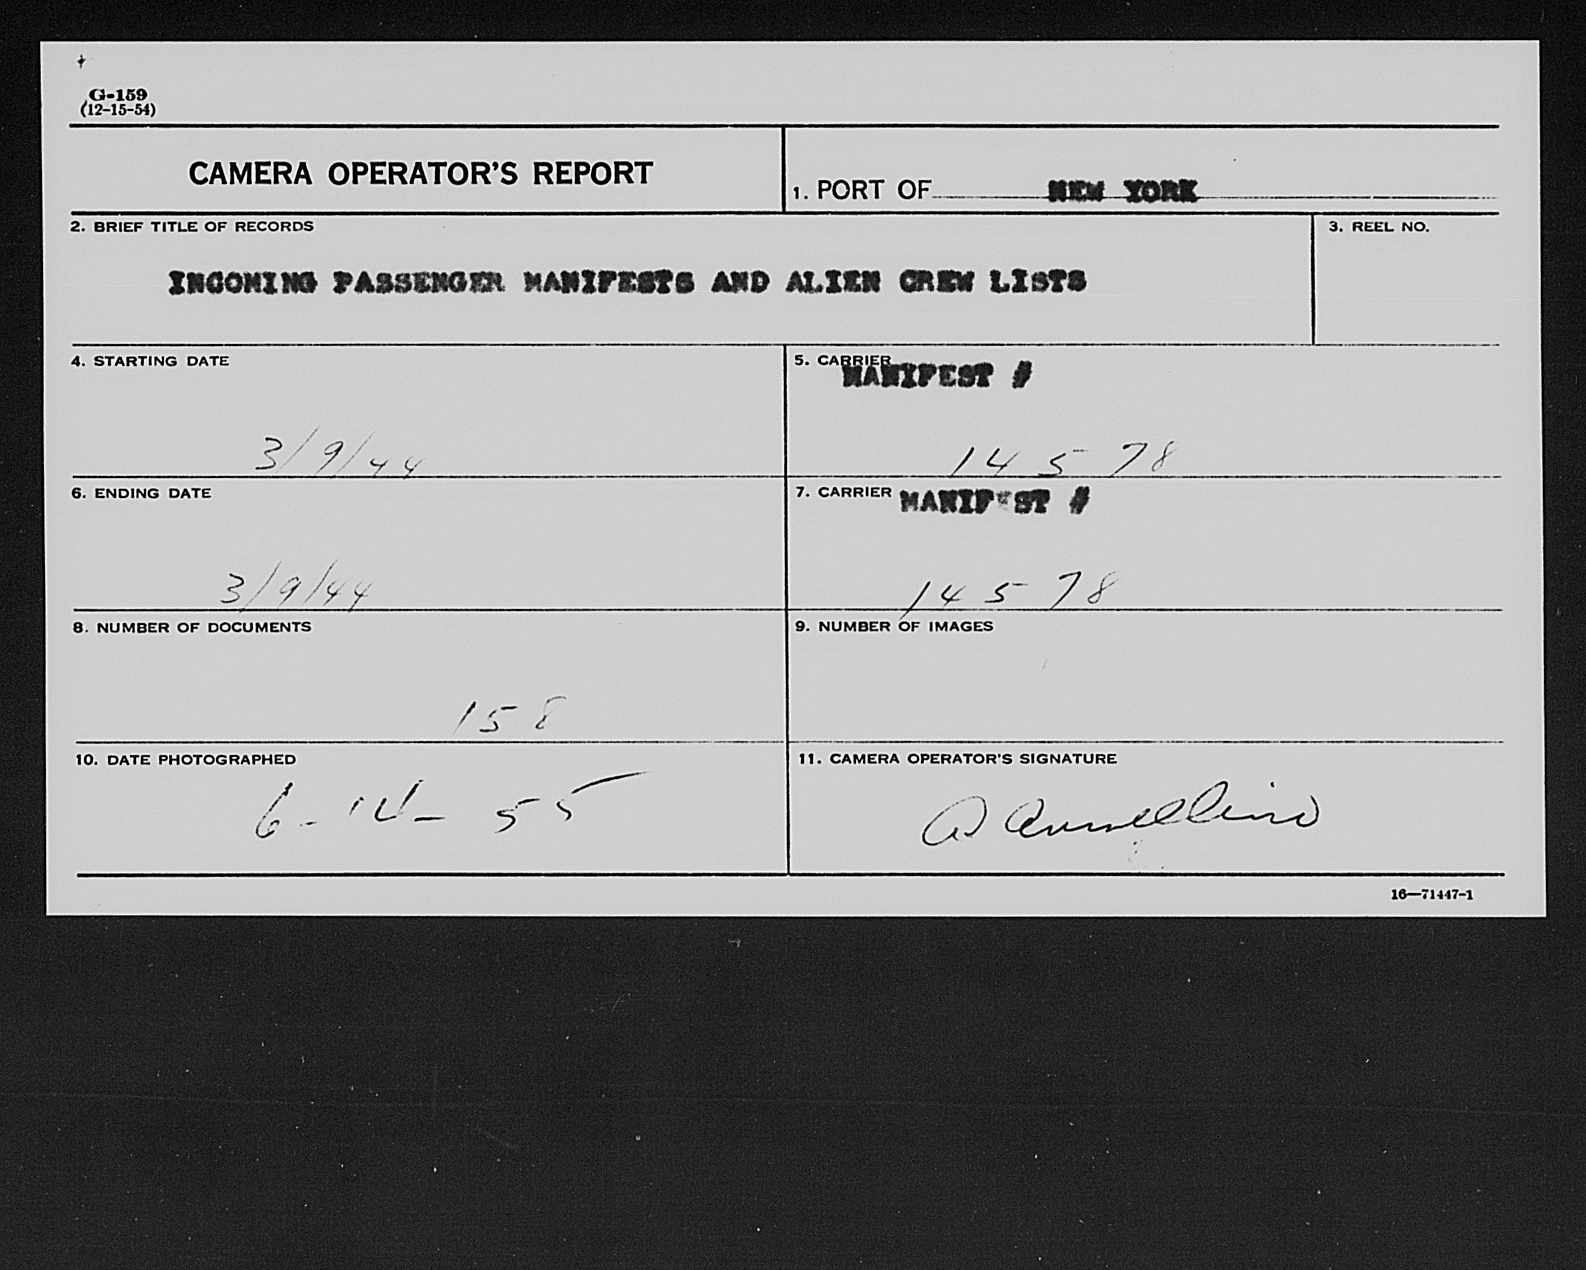 G-159
(12-15-54)
CAMERA OPERATOR'S REPORT
1. PORT OF NEW YORK
2. BRIEF TITLE OF RECORDS
3. REEL NO.
INCOMING PASSENGER MANIFESTS AND ALIEN CREW LISTS
4. STARTING DATE
5. CARRIER
MANIFEST #
3/9/44
14578
6. ENDING DATE
7. CARRIER MANIFEST #
3/9/44
14578
8. NUMBER OF DOCUMENTS
9. NUMBER OF IMAGES
158
10. DATE PHOTOGRAPHED
11. CAMERA OPERATOR'S SIGNATURE
6-14-55
16—71447-1